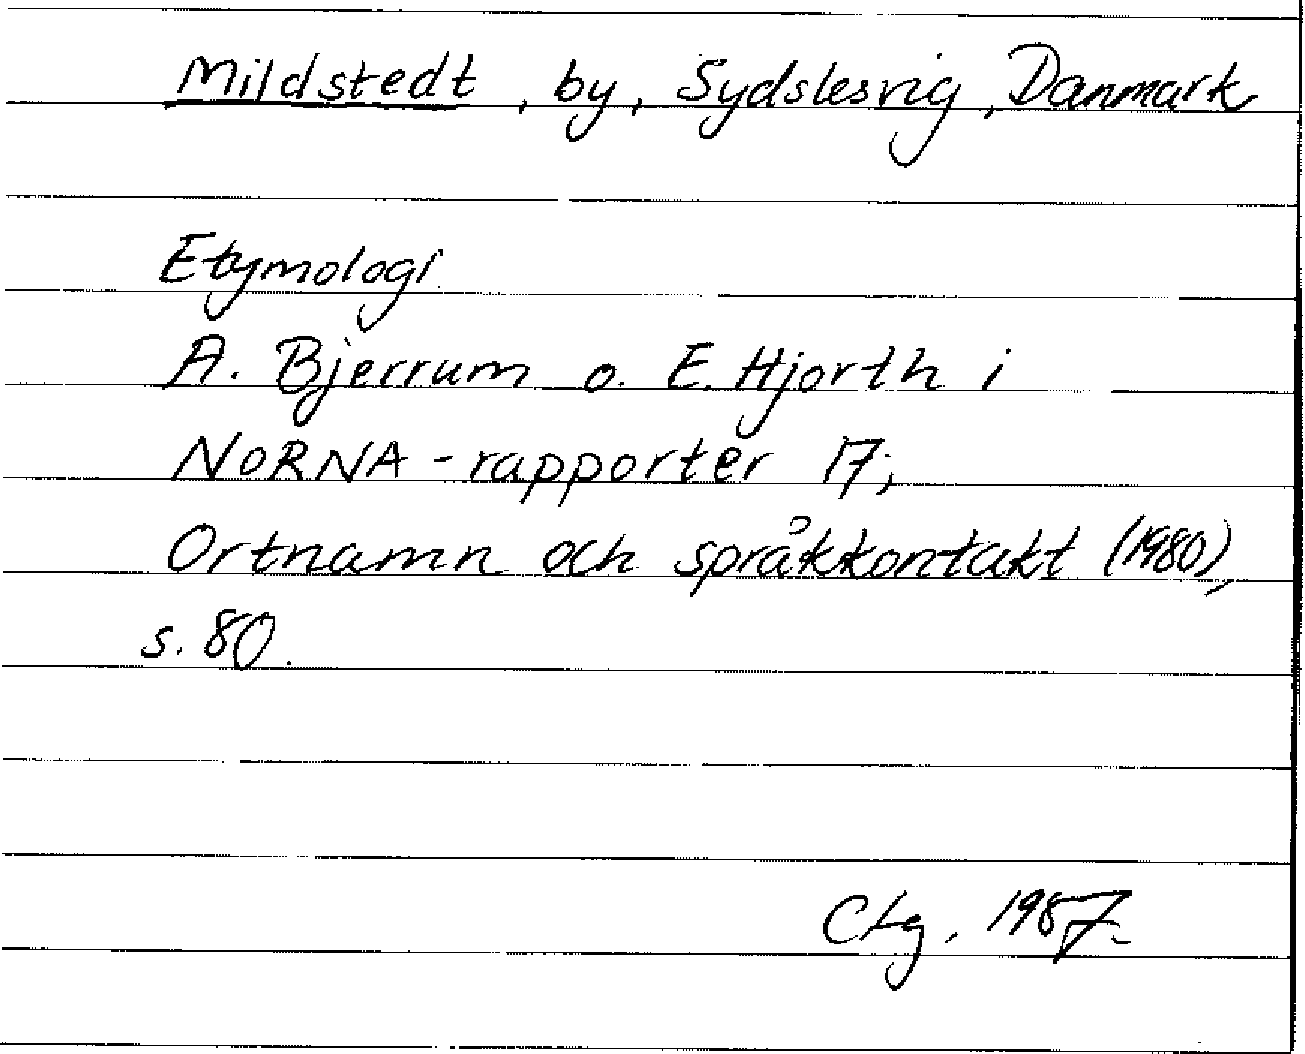 Mildstedt, by, Sydslesvig, Danmark
Etymologi
A. Bjerrum o. E. Hjorth i
NORNA-rapporter 17;
Ortnamn och språkkontakt (1980),
s. 80.
CLg, 1987.